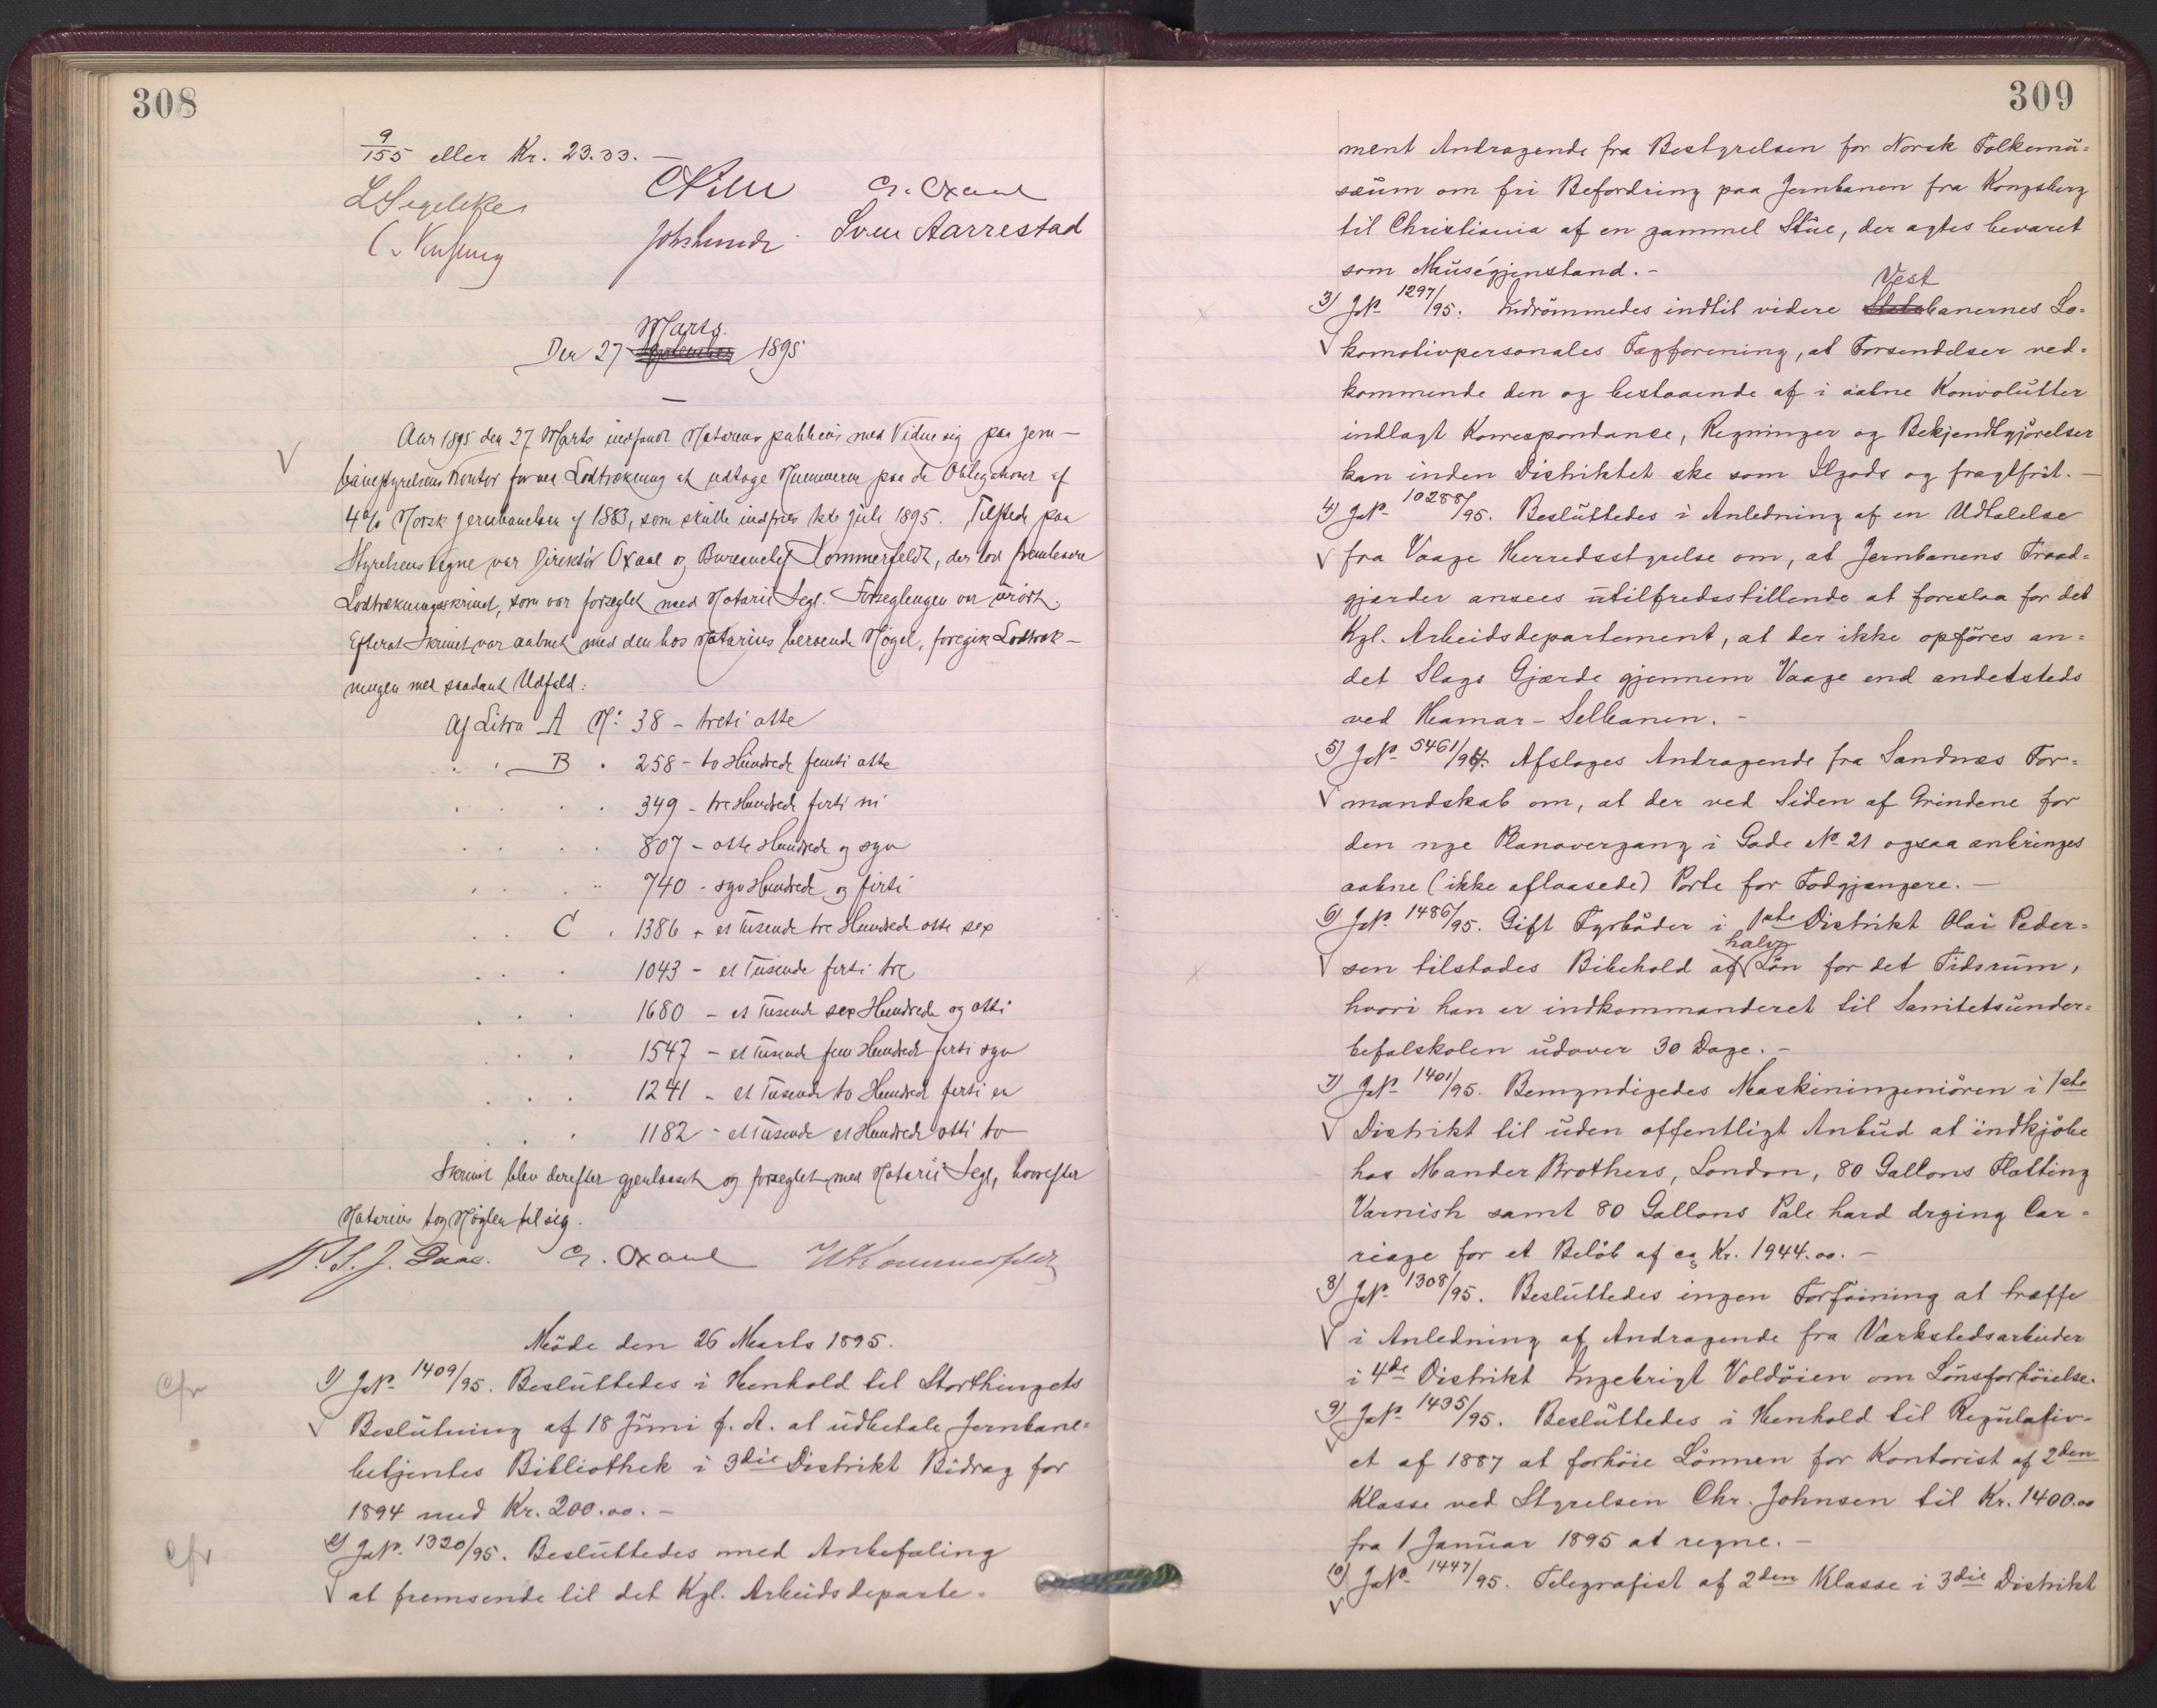 308
9/155 eller Kr. 23.33.
LSegelcke
Chr. Oxaal
Sven Aarrestad
Marts.
Den 27 September 1895
Aar 1895 den 27 Marts indfandt Notarius publicus med Vidne sig paa Jern-
banestyrelsens Kontor for ved Lodtrækning at udtage Numerne paa de Obligationer af
4 % Norsk Jernbanelaan af 1883, som skulle indfries 1ste Juli 1895. Tilstede paa
Styrelsens Vegne var Direktör Oxaal og Bureauchef Kommerfeldt, der lod frembære
Lodtrækningsskrinet, som var forseglet med Notarii Segl. Forseglingen var urört.
Efterat Skrinet var aabnet med den hos Notarius beroende Nögel, foregik Lodtræk-
ningen med saadant Udfald:
Af Litra A No: 38 - treti otte
. . B . 258 - to Hundrede femti otte
. . . . 349 - tre Hundrede firti ni
. . . . 807 - otte Hundrede og syv
. . . . 740 - syv Hundrede og firti
. . C . 1386 - et Tusende tre Hundrede otte sex
. . . 1043 - et Tusende firti tre
. . . 1680 - et Tusende sex Hundrede og otti
. . . 1547 - et Tusende fem Hundrede firti syv
. . . 1241 - et Tusende to Hundrede firti en
. . . 1182 - et Tusende et Hundrede otti to
Skrinet blev derefter gjenlaaset og forseglet med Notarii Segl, hvorefter
Notarius tog Nöglen til sig.
Daae. Chr. Oxaal Kommerfeldt
Möde den 26 Marts 1895.
cfr 1) JNo. 1409/95. Besluttedes i Henhold til Storthingets
Beslutning af 18 Juni f. A. at udbetale Jernbane=
betjentes Bibliothek i 3die Distrikt Bidrag for
1894 med Kr. 200.00. -
cfr 2) JNo. 1320/95. Besluttedes med Anbefaling
at fremsende til det Kgl. Arbeidsdeparte=
309
ment Andragende fra Bestyrelsen for Norsk Folkemu=
sæum om fri Befordring paa Jernbanen fra Kongsberg
til Christiania af en gammel Stue, der agtes bevaret
som Muségjenstand. -
Vest
3) JNo. 1297/95. Indrömmedes indtil videre Statsbanernes Lo=
komotivpersonales Fagforening, at Forsendelser ved=
kommende den og bestaaende af i aabne Konvolutter
indlagt Korrespondance, Regninger og Bekjendtgjörelser
kan inden Distriktet ske som Ilgods og fragtfrit. -
4) JNo. 10288/95. Besluttedes i Anledning af en Udtalelse
fra Vaage Herredsstyrelse om, at Jernbanens Traad=
gjærder ansees utilfredsstillende at foreslaa for det
Kgl. Arbeidsdepartement, at der ikke opföres an=
det Slags Gjærde gjennem Vaage end andetsteds
ved Hamar-Selbanen. -
5) JNo. 5461/94. Afsloges Andragende fra Sandnæs For=
mandskab om, at der ved Siden af Grindene for
den nye Planovergang i Gade No. 21 ogsaa anbringes
aabne (ikke aflaasede) Porte for Fodgjængere. -
6) JNo. 1486/95. Gift Fyrböder i 1ste Distrikt Olai Peder=
halv
sen tilstodes Bibehold af Lön for det Tidsrum,
hvori han er indkommanderet til Sanitetsunder=
befalskolen udover 30 Dage. -
7) JNo. 1401/95. Bemyndigedes Maskiningeniören i 1ste
Distrikt til uden offentligt Anbud at indkjöbe
hos Mander Brothers, London, 80 Gallons Flatting
Varnish samt 80 Gallons Pale hard drying Car=
riage for et Belöb af ca Kr. 1944.00. -
8) JNo. 1308/95. Besluttedes ingen Forföining at træffe
i Anledning af Andragende fra Værkstedsarbeider
i 4de Distrikt Ingebrigt Voldöien om Lönsforhöielse.
9) JNo. 1435/95. Besluttedes i Henhold til Regulativ-
et af 1887 at forhöie Lönnen for Kontorist af 2den
Klasse ved Styrelsen Chr. Johnsen til Kr. 1400.00
fra 1 Januar 1895 at regne. -
10) JNo. 1447/95. Telegrafist af 2den Klasse i 3die Distrikt